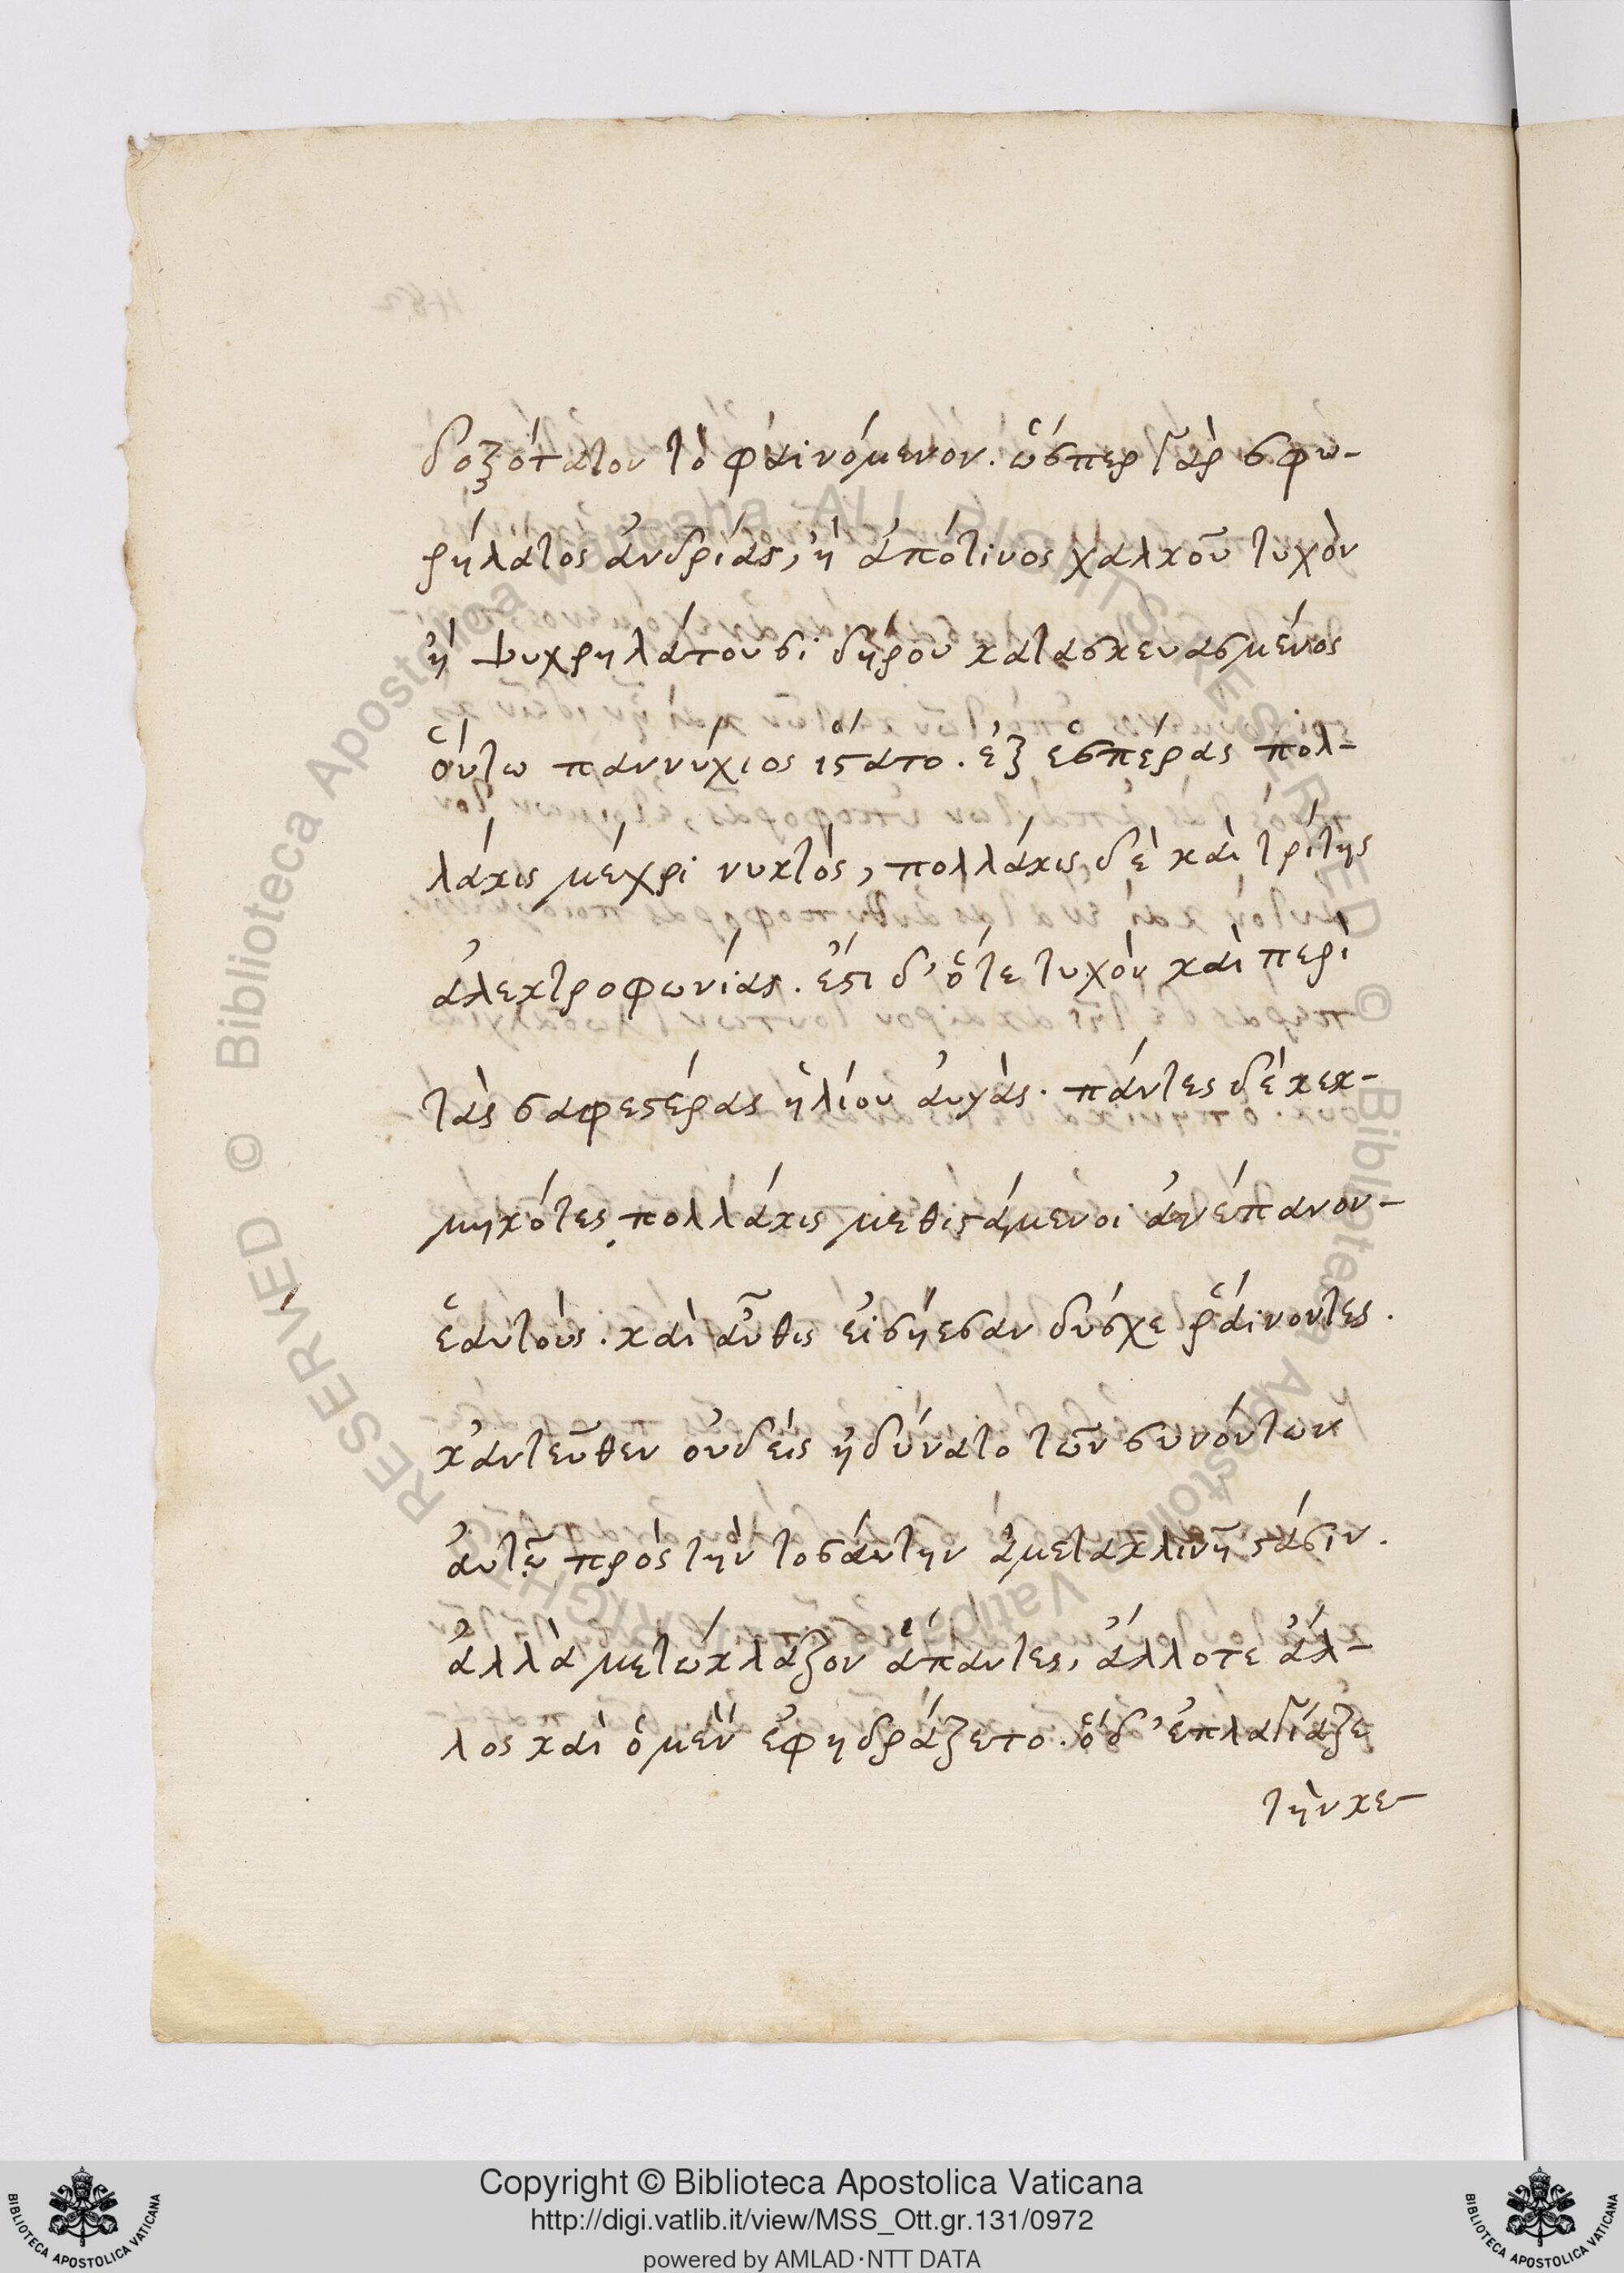 δοξότατον τὸ φαινόμενον. ὥσπερ γὰρ σφυ-
ρήλατος ἀνδριάς, ἢ ἀπότινος χαλκοῦ τυχὸν
ἢ ψυχρηλάτου σιδήρου κατασκευασμένος
οὕτω παννύχιος ἵστατο. ἐξ ἑσπέρας πολ-
λάκις μέχρι νυκτὸς, πολλάκις δὲ καὶ τρίτης
ἀλεκτροφωνίας. ἔστι δ' ὅτε τυχὸν καὶ περὶ
τὰς σαφεστέρας ἡλίου αὐγάς. πάντες δὲ κεκ-
μηκότες πολλάκις μεθιστάμενοι ἀνέπανον-
ἑαυτοὺς. καὶ αὖθις εἰσήεσαν δύσχεραίνοντες.
κἀντεῦθεν οὐδεὶς ἠδύνατο τῶν συνόντων
αὐτῷ πρὸς τὴν τοσαύτην ἀμετακλινῆ στάσιν.
ἀλλὰ μετώκλαζον ἅπαντες, ἄλλοτε ἄλ-
λος καὶ ὁ μὲν ἐφηδράζετο. ὁ δ' ἐπλαγίαζε
τὴν κε-
Copyright © Biblioteca Apostolica Vaticana
http://digi.vatlib.it/view/MSS_Ott.gr.131/0972
powered by AMLAD·NTT DATA
BIBLIOTECA APOSTOLICA VATICANA
BIBLIOTECA APOSTOLICA VATICANA